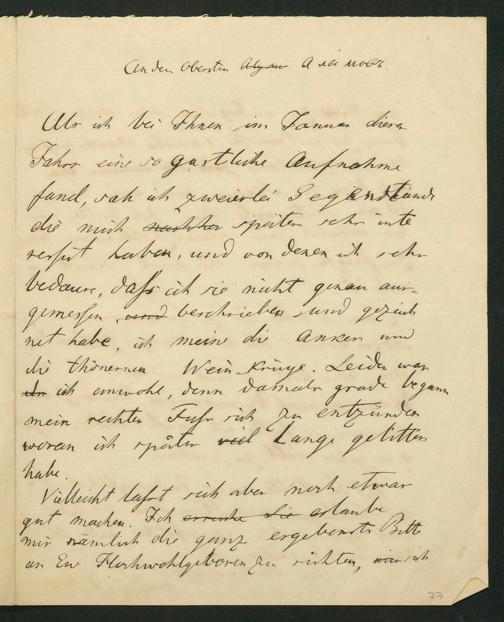 An den Obersten
Als ich bei Ihnen im Januar dieses
Jahrs eine so gastliche Aufnahme
fand, sah ich zweierlei Gegenstände
die mich nachher später sehr inte
ressirt haben, und von denen ich sehr
bedaure, dass ich sie nicht genau aus-
gemessen, und beschrieben und gezeich
net habe, ich meine die Anker und
die thönernen Wein Krüge. Leider war
ich unwohl, denn damals grade begann
mein rechter Fuss sich zu entzünden
woran ich später viel Lange gelitten
habe.
Vielleicht lässt sich aber noch etwas
gut machen. Ich ersuche Sie erlaube
mir nämlich die ganz ergebenste Bitte
an Ew Hochwohlgeboren zu richten,
77